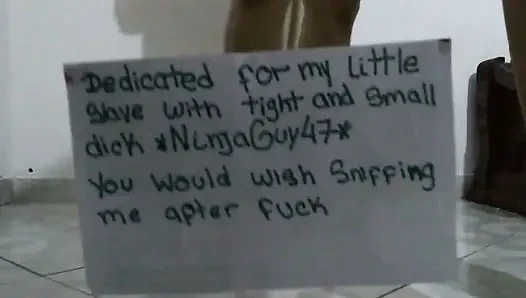 Dedicated for my Little
Slave with tight and Small
dick *NinjaGuy47*
You would wish Sniffing
me after fuck